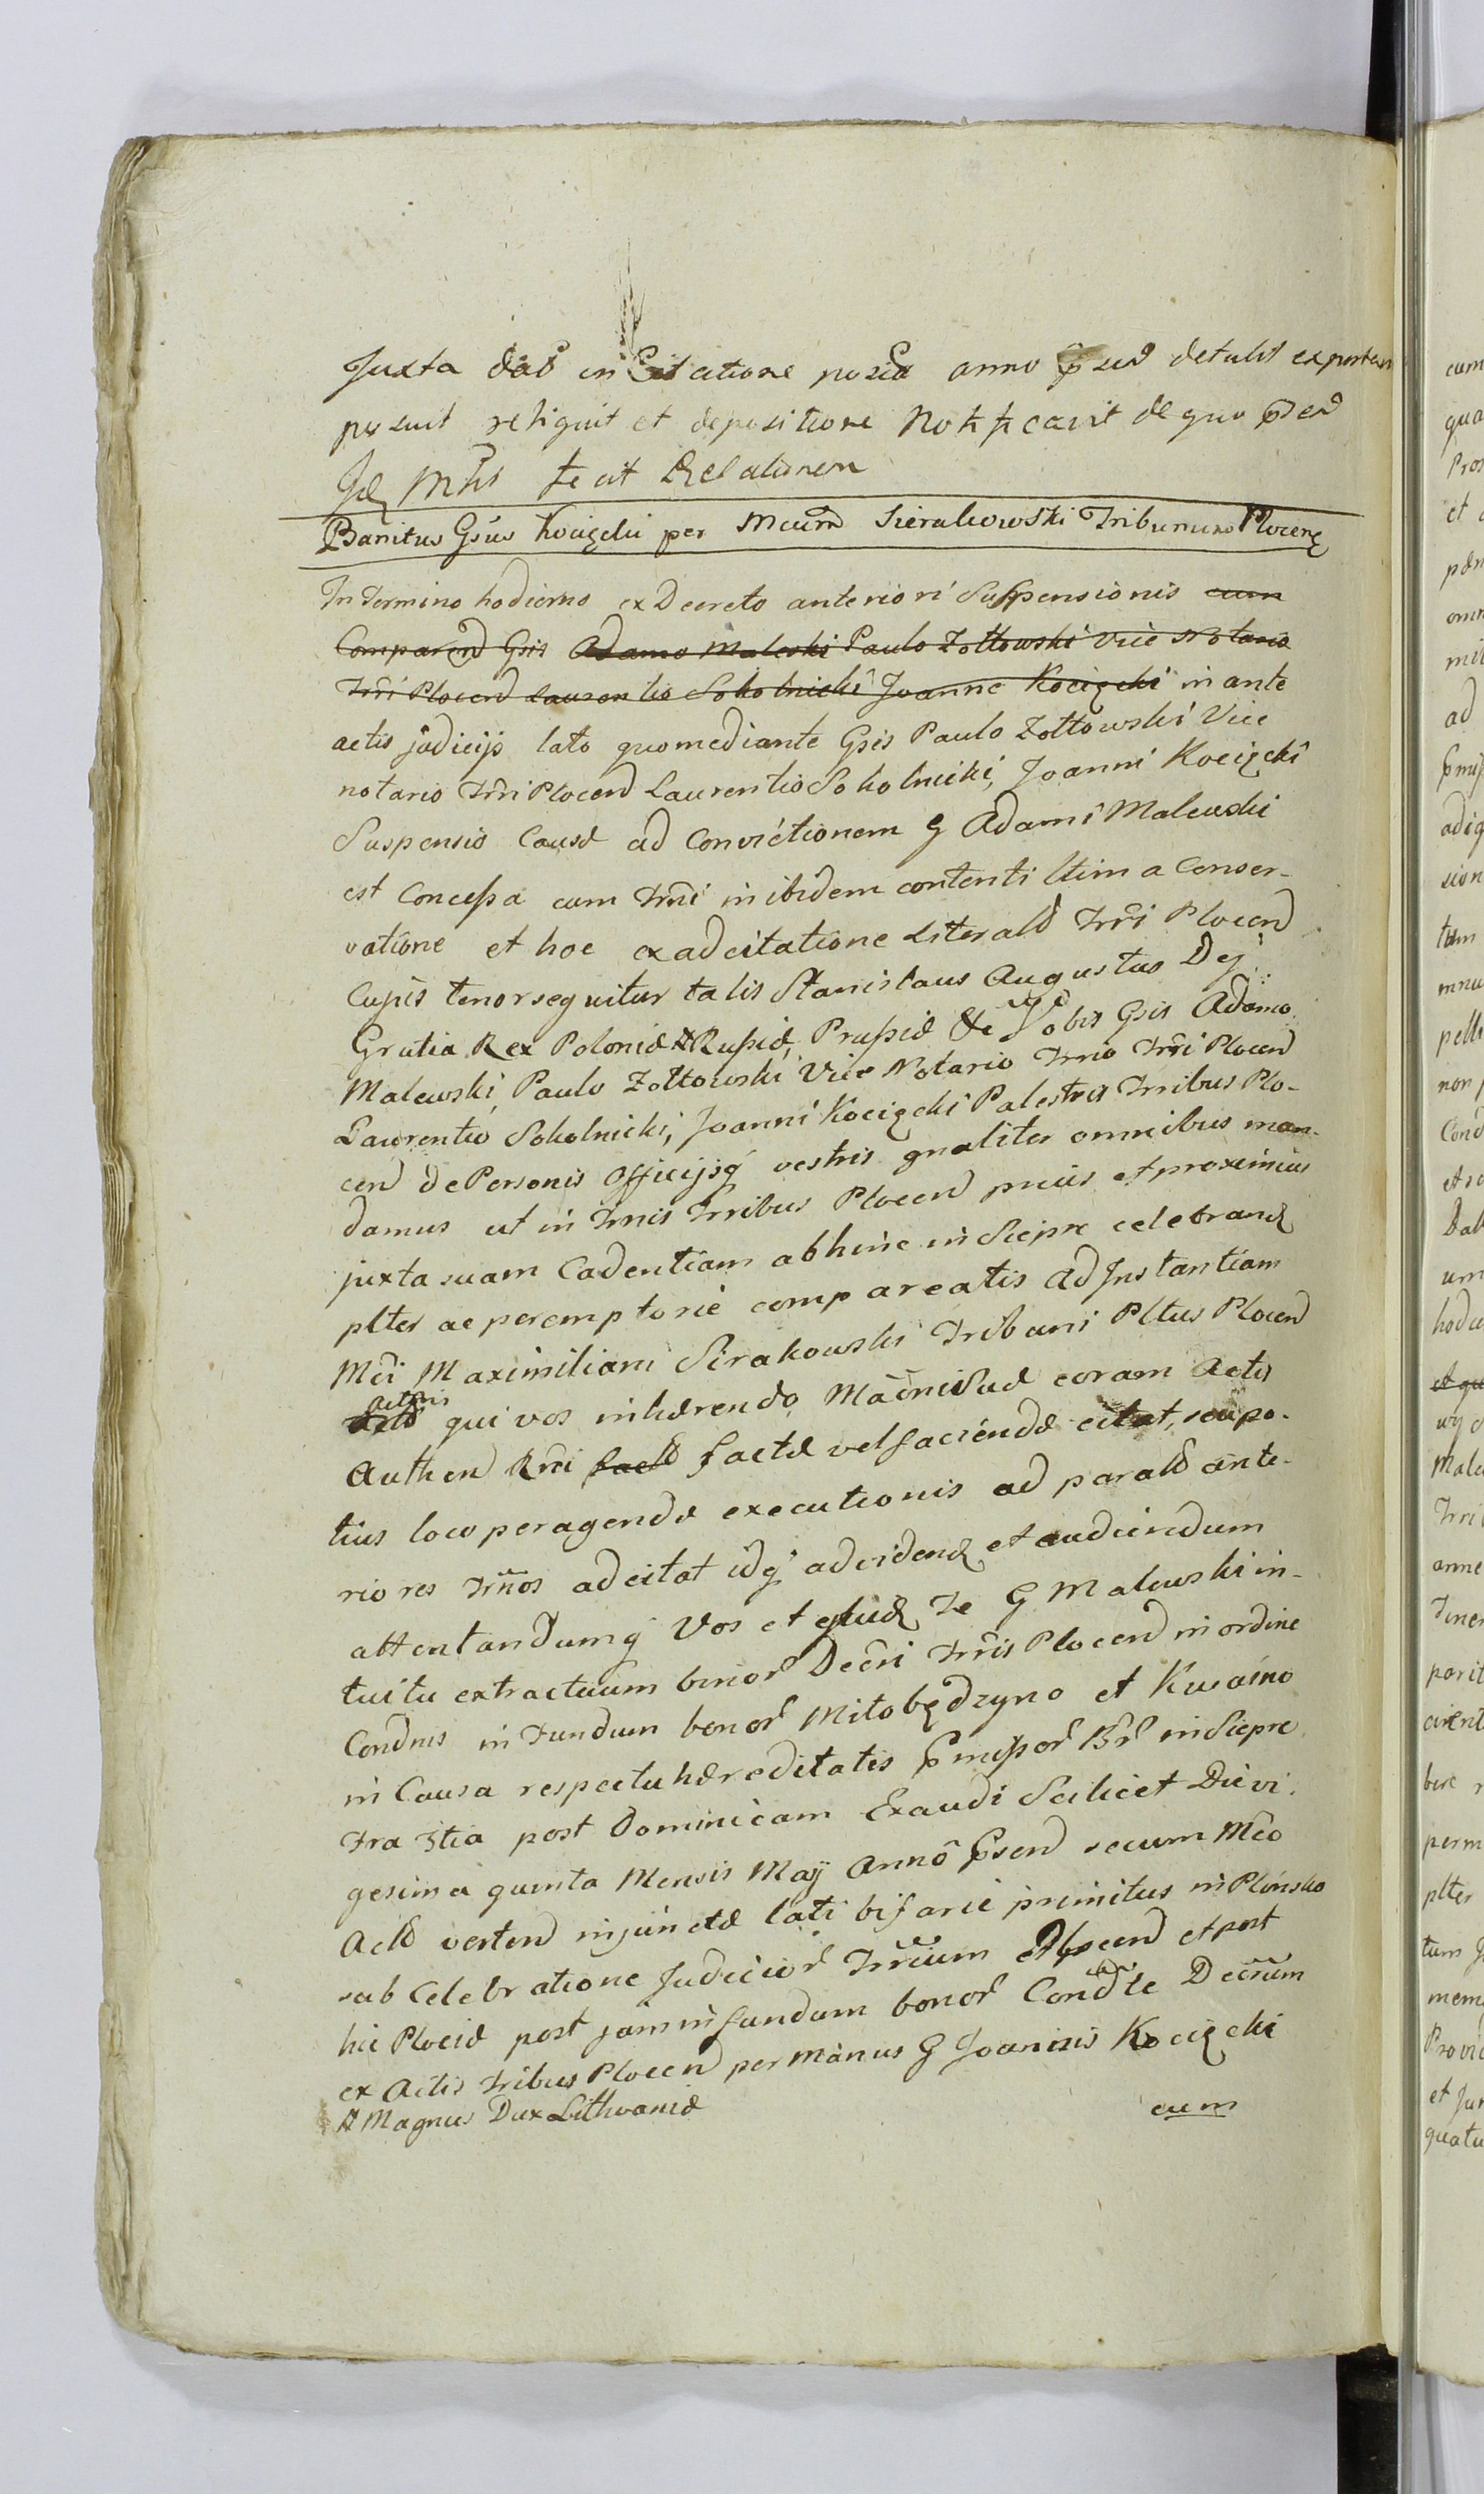 Juxta dat in Citatione posita anno psed detulit exportavit
posuit reliquit et depositione Notificavit de quo id
Idem Mtis fecit Relationem
Banitus Gsus Kocięcki per Mcum Sierakowski Tribunum Plocens
In Termino hodierno ex Decreto anteriori Suspensionis cum
Comparend Gsis Adamo Malewski Paulo Zołtowski Vice Notario
Trri Plocend Laurentio Sokolnicki Joanne Kocięcki in ante
actis judicijs lato quomediante Gsis Paulo Zołtowski Vice
notario Trri Plocend Laurentio Sokolnicki, Joanni Kocięcki
Suspensio Causæ ad Convictionem G Adami Malewski
est Concessa cum Trmi in ibidem contenti ltim a Conser-
vatione et hoc ex adcitatione Literald Trri Plocend
Cujus tenor sequitur talis Stanislaus Augustus Dej
Gratia Rex Poloniæ # Russiæ, Prussiæ &c Vobis Gsis Adamo
Malewski, Paulo Zołtowski Vice Notario Trrio Trri Plocend
Laurentio Sokolnicki, Joanni Kocięcki Palestris Trribus Plo-
cend de Personis Officijsq vestris gnaliter omnibus man-
damus ut in Trmis Trribus Plocend pnciis et proximius
juxta suam Cadentiam abhinc in Sieprc celebrand
plter ac peremptorie compareatis Ad Instantiam
Mci Maximiliani Sirakowski Tribuni Pltus Plocend
Actoris qui vos inhærendo Macnisuæ coram Actis
Authend Rmi facld factæ vel faciendæ citat, seu po-
tius loco peragendæ executionis ad parald ante-
riores Trmos adcitat idq ad vidend et audiendum
attentandumq Vos et Te G Malewski in-
tuitu extractuum binor Decri Trris Plocend in ordine
Condnis in Fundum bonor Miłobędzyno et Kwasino
in Causa respectu hæreditatis pmissor Br in Sieprc
Fra 3tia post Dominicam Exaudi Scilicet Die vi-
gesima quinta Mensis Maÿ Anno psend secum Mco
Acld vertend injunctæ lati bifarie primitus in Plońsko
sub Celebratione Judicior Trrium Plocend et post
hic Plociæ post jam in fundum bonor Condte Decrum
ex Actis Tribus Plocend per manus G Joannis Kocięcki
# Magnus Dux Lithvaniæ
cum